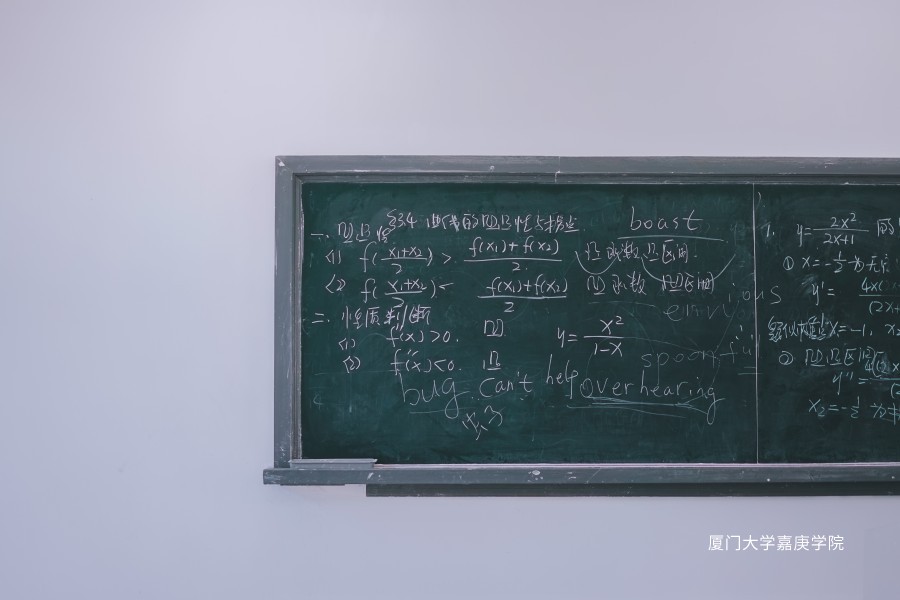 §3.4 曲线的凹凸性与拐点
一、凹凸性
(1) f(x₁+x₂/2) > f(x₁)+f(x₂)/2 凸函数,凸区间.
(2) f(x₁+x₂/2) < f(x₁)+f(x₂)/2 凹函数 凹区间
二、性质判断
(1) f''(x)>0. 凹
(2) f''(x)<0. 凸
y=x²/1-x
boast
envious
spoonful
bug. can't help overhearing
1. y=2x²/2x+1
① x=-1/2
y'=
x=-1,
② 凹凸区间
y''=
x₂=-1/2 为
厦门大学嘉庚学院